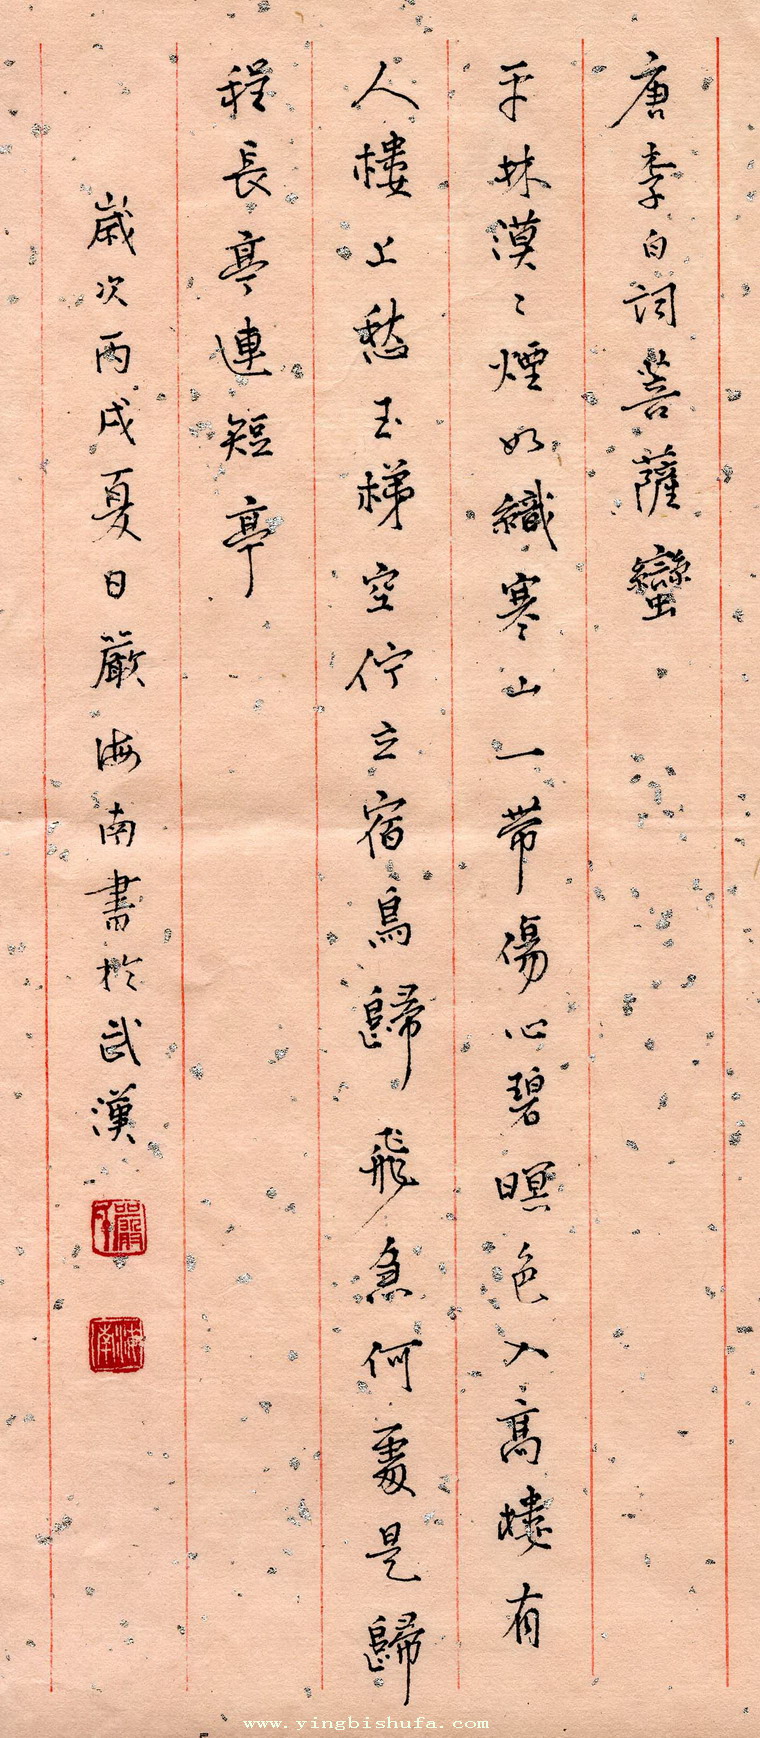 唐李白詞菩薩蠻
平林漠〻煙如織寒山一帶傷心碧暝色入高樓有
人樓上愁玉梯空佇立宿鳥歸飛急何處是歸
程長亭連短亭
歲次丙戌夏日嚴海南書於武漢
嚴
海南
www.yingbishufa.com